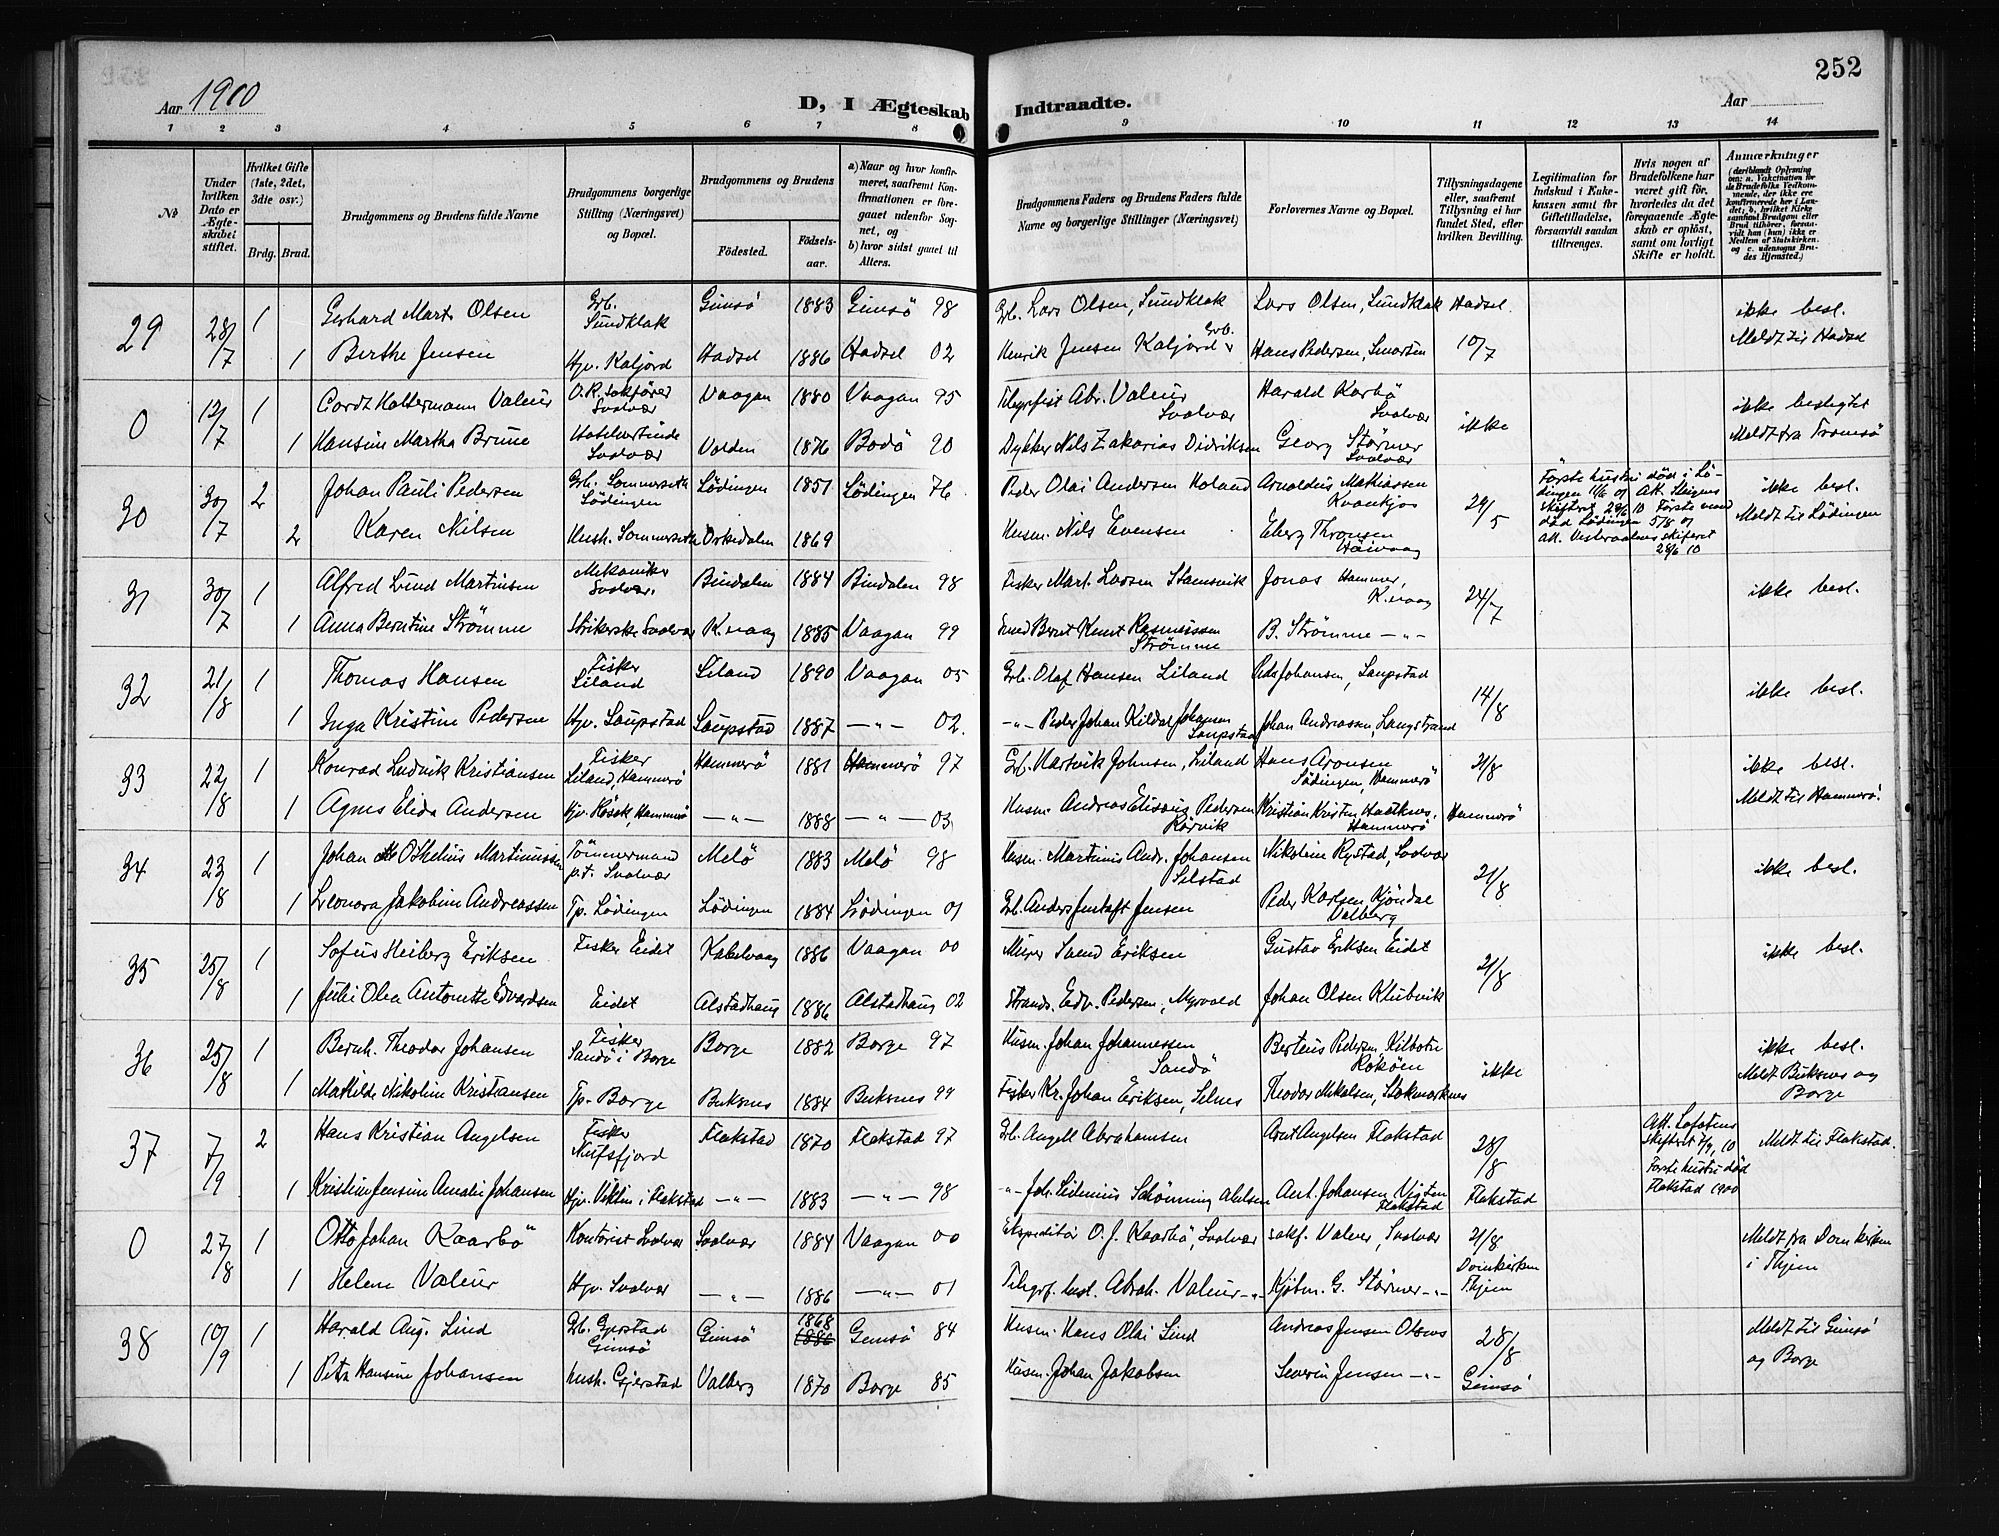 252
Aar 1910
D, I Ægteskab Indtraadte.
Aar
1 2 3 4 5 6 7 8 9 10 11 12 13 14
No
Under hvilken Dato er Ægteskabet stiftet.
Hvilket Gifte (1ste, 2det, 3die osv.)
Brdg. Brud.
Brudgommens og Brudens fulde Navne
Brudgommens borgerlige Stilling (Næringsvei) og Bopæl.
Brudgommens og Brudens
Födested. Födsels-aar.
a) Naar og hvor konfirmeret, saafremt Konfirmationen er foregaaet udenfor Sognet, og
b) hvor sidst gaaet til Alters.
Brudgommens Faders og Brudens Faders fulde Navne og borgerlige Stillinger (Næringsvei)
Forlovernes Navne og Bopæl.
Tillysningsdagene eller, saafremt Tillysning ei har fundet Sted, efter hvilken Bevilling.
Legitimation for Indskud i Enkekassen samt for Giftetilladelse, forsaavidt saadan tiltrænges.
Hvis nogen af Brudefolkene har været gift för, hvorledes da det foregaaende Ægteskab er oplöst, samt om lovligt Skifte er holdt.
Anmærkninger (deriblandt Oplysning om: a. Vakcination for de Brudefolks Vedkommende, der ikke ere konfirmerede her i Landet; b. hvilket Kirkesamfund Brudgom eller Brud tilhörer, forsaavidt han (hun) ikke er Medlem af Statskirken, og c. udensogns Brudes Hjemsted.)
29 28/7 1 Gerhard Mart. Olsen Grb. Sundklak Gimsö 1883 Gimsö 98 Grb. Lars Olsen, Sundklak Lars Olsen, Sundklak Hadsel ikke besl.
1 Berthe Jensen Hjv. Kaljord Hadsel 1886 Hadsel 02 Henrik Jensen Kaljord Grb. Hans Pedersen, Smorten 10/7 Meldt til Hadsel
0 12/7 1 Cordt Holtermann Valeur O.R. Sakförer Svolvær Vaagan 1880 Vaagan 95 Telegrfist Abr. Valeur Svolvær Harald Karbö Svolvær ikke ikke beslegtet
1 Hansine Martha Brune Hotelvertinde Svolvær Volden 1876 Bodö 90 Dykker Nils Zakarias Didriksen Georg Störmer Svolvær Meldt fra Tromsö
30 30/7 2 Johan Pauli Pedersen Grb. Sommerseth Lödingen Lödingen 1851 Lödingen 76 Peder Olai Andersen Holand Arnoldus Mathiassen 29/5 Förste hustru död i Lödingen 11/6 09 Att. Steigens skifteret 29/6 10 Förste mand död Lödingen 5/8 07 Att. Vesteraalens skifteret 28/6 10 ikke besl.
2 Karen Nilsen Hush. Sommerseth Orkedalen 1869 Husm. Nils Evensen Elberg Thronsen Meldt til Lödingen
31 30/7 1 Alfred Lund Martinsen Mekaniker Svolvær. Bindalen 1884 Bindalen 98 Fisker Mart. Larsen Stamsvik Jonas Hammer, K.vaag 24/7 ikke besl.
1 Anna Berntine Strömme Strikerske Svolvær K.vaag 1885 Vaagan 99 Smed Bernt Knut Rasmussen Strömme B. Strömme —"—
32 21/8 1 Thomas Hansen Fisker Liland Liland 1890 Vaagan 05 Grb. Olaf Hansen Liland Peds Johansen, Laupstad 14/8 ikke besl.
1 Inga Kristine Pedersen Hjv. Laupstad Laupstad 1887 —"— 02. —"— Peder Johan Kildal Johansen Laupstad Johan Andreassen, Langstrand
33 22/8 1 Konrad Ludvik Kristiansen Fisker Liland, Hammerö Hammerö 1881 Hammerö 97 Grb. Hartvik Johnsen, Liland Hans Aronsen Lödingen, Hammerö 21/8 ikke besl.
1 Agnes Elida Andersen Hjv. Rösok, Hammerö —"— 1888 —"— 03 Husm. Andreas Elisæus Pedersen Rörvik Kristian Kristen Hammerö Hammerö Meldt til Hammerö.
34 23/8 1 Johan Othelius Martinussen Tömmermand p.t. Svolvær Melö 1883 Melö 98 Husm. Martinus Andr. Johansen Selstad Nikoline Rystad, Svolvær 21/8 ikke besl.
1 Leonora Jakobine Andreassen Tp. Lödingen Lödingen 1884 Lödingen 01 Grb. Anders Gustaft Jensen Peder Karlsen Kjöndal Valberg
35 25/8 1 Sofus Heiberg Eriksen Fisker Eidet Kabelvaag 1886 Vaagan 00 Murer Svend Eriksen Gustav Eriksen Eidet 21/8 ikke besl.
1 Juli Olea Antonette Edvardsen Eidet Alstadhaug 1886 Alstadhaug 02 Strands. Edv. Pedersen, Myrvold Johan Olsen Klubvik
36 25/8 1 Bernh. Theodor Johansen Fisker Sandö i Borge Borge 1882 Borge 97 Husm. Johan Johannessen Sandö Berteus Pedersen, Kilbotn ikke ikke besl.
1 Mathilde Nikoline Kristiansen Tp. Borge Buksnes 1884 Buksnes 99 Fisker Kr. Johan Eriksen, Selnes Theodor Mikalsen, Stokmarknes Meldt Buksnes og Borge
37 7/9 2 Hans Kristian Angelsen Fisker Nufsfjord Flakstad 1870 Flakstad 97 Grb. Angell Abrahamsen Arnt Angelsen Flakstad 28/8 Att. Lofotens skifteret 7/9, 10 Förste hustru död Flakstad 1900 Meldt til Flakstad.
1 Kristine Jensine Amalie Johansen Hjv. Vikten i Flakstad —"— 1883 —"— 98 —"— Joh. Sidenius Schönning Ant. Johansen Vigten Flakstad Flakstad
0 27/8 1 Otto Johan Kaarbö Kontorist Svolvær Svolvær 1884 Vaagan 00 Ekspeditör O. J. Kaarbö, Svolvær sakf. Valeur, Svolvær 21/8 Meldt fra Domkirken i Thjem
1 Helene Valeur Hjv. Svolvær —"— 1886 —"— 01 Telegrf. best. Abrah. Valeur —"— Kjöbm. G. Störmer —"— Domkirken Thjem
38 10/9 1 Harald Aug. Lind Grb. Gjerstad Gimsö Gimsö 1868 1886 Gimsö 84 Husm. Hans Olai Lind Andreas Jensen Olsnes 28/8 Meldt til Gimsö
1 Petra Hansine Johansen Hush. Gjerstad Valberg 1870 Borge 85 Husm. Johan Jakobsen Severin Jensen —"— Gimsö og Borge